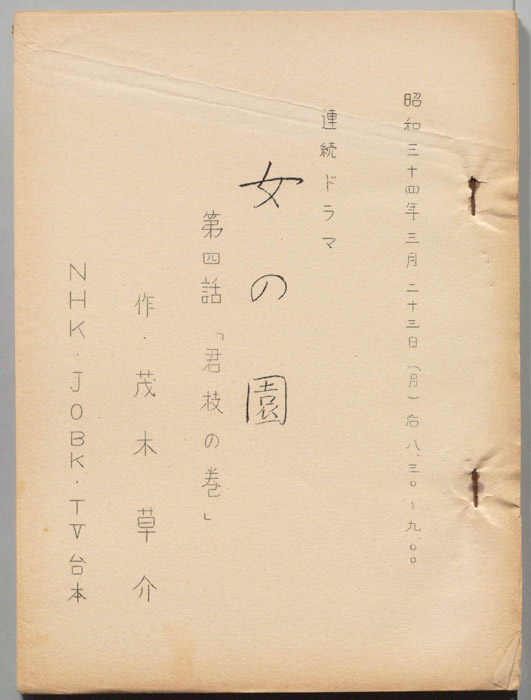 昭和三十四年三月二十三日(月)后八.三〇〜九.〇〇
連続ドラマ
女の園
第四話「君枝の巻」
作.茂木草介
NHK.JOBK.TV台本